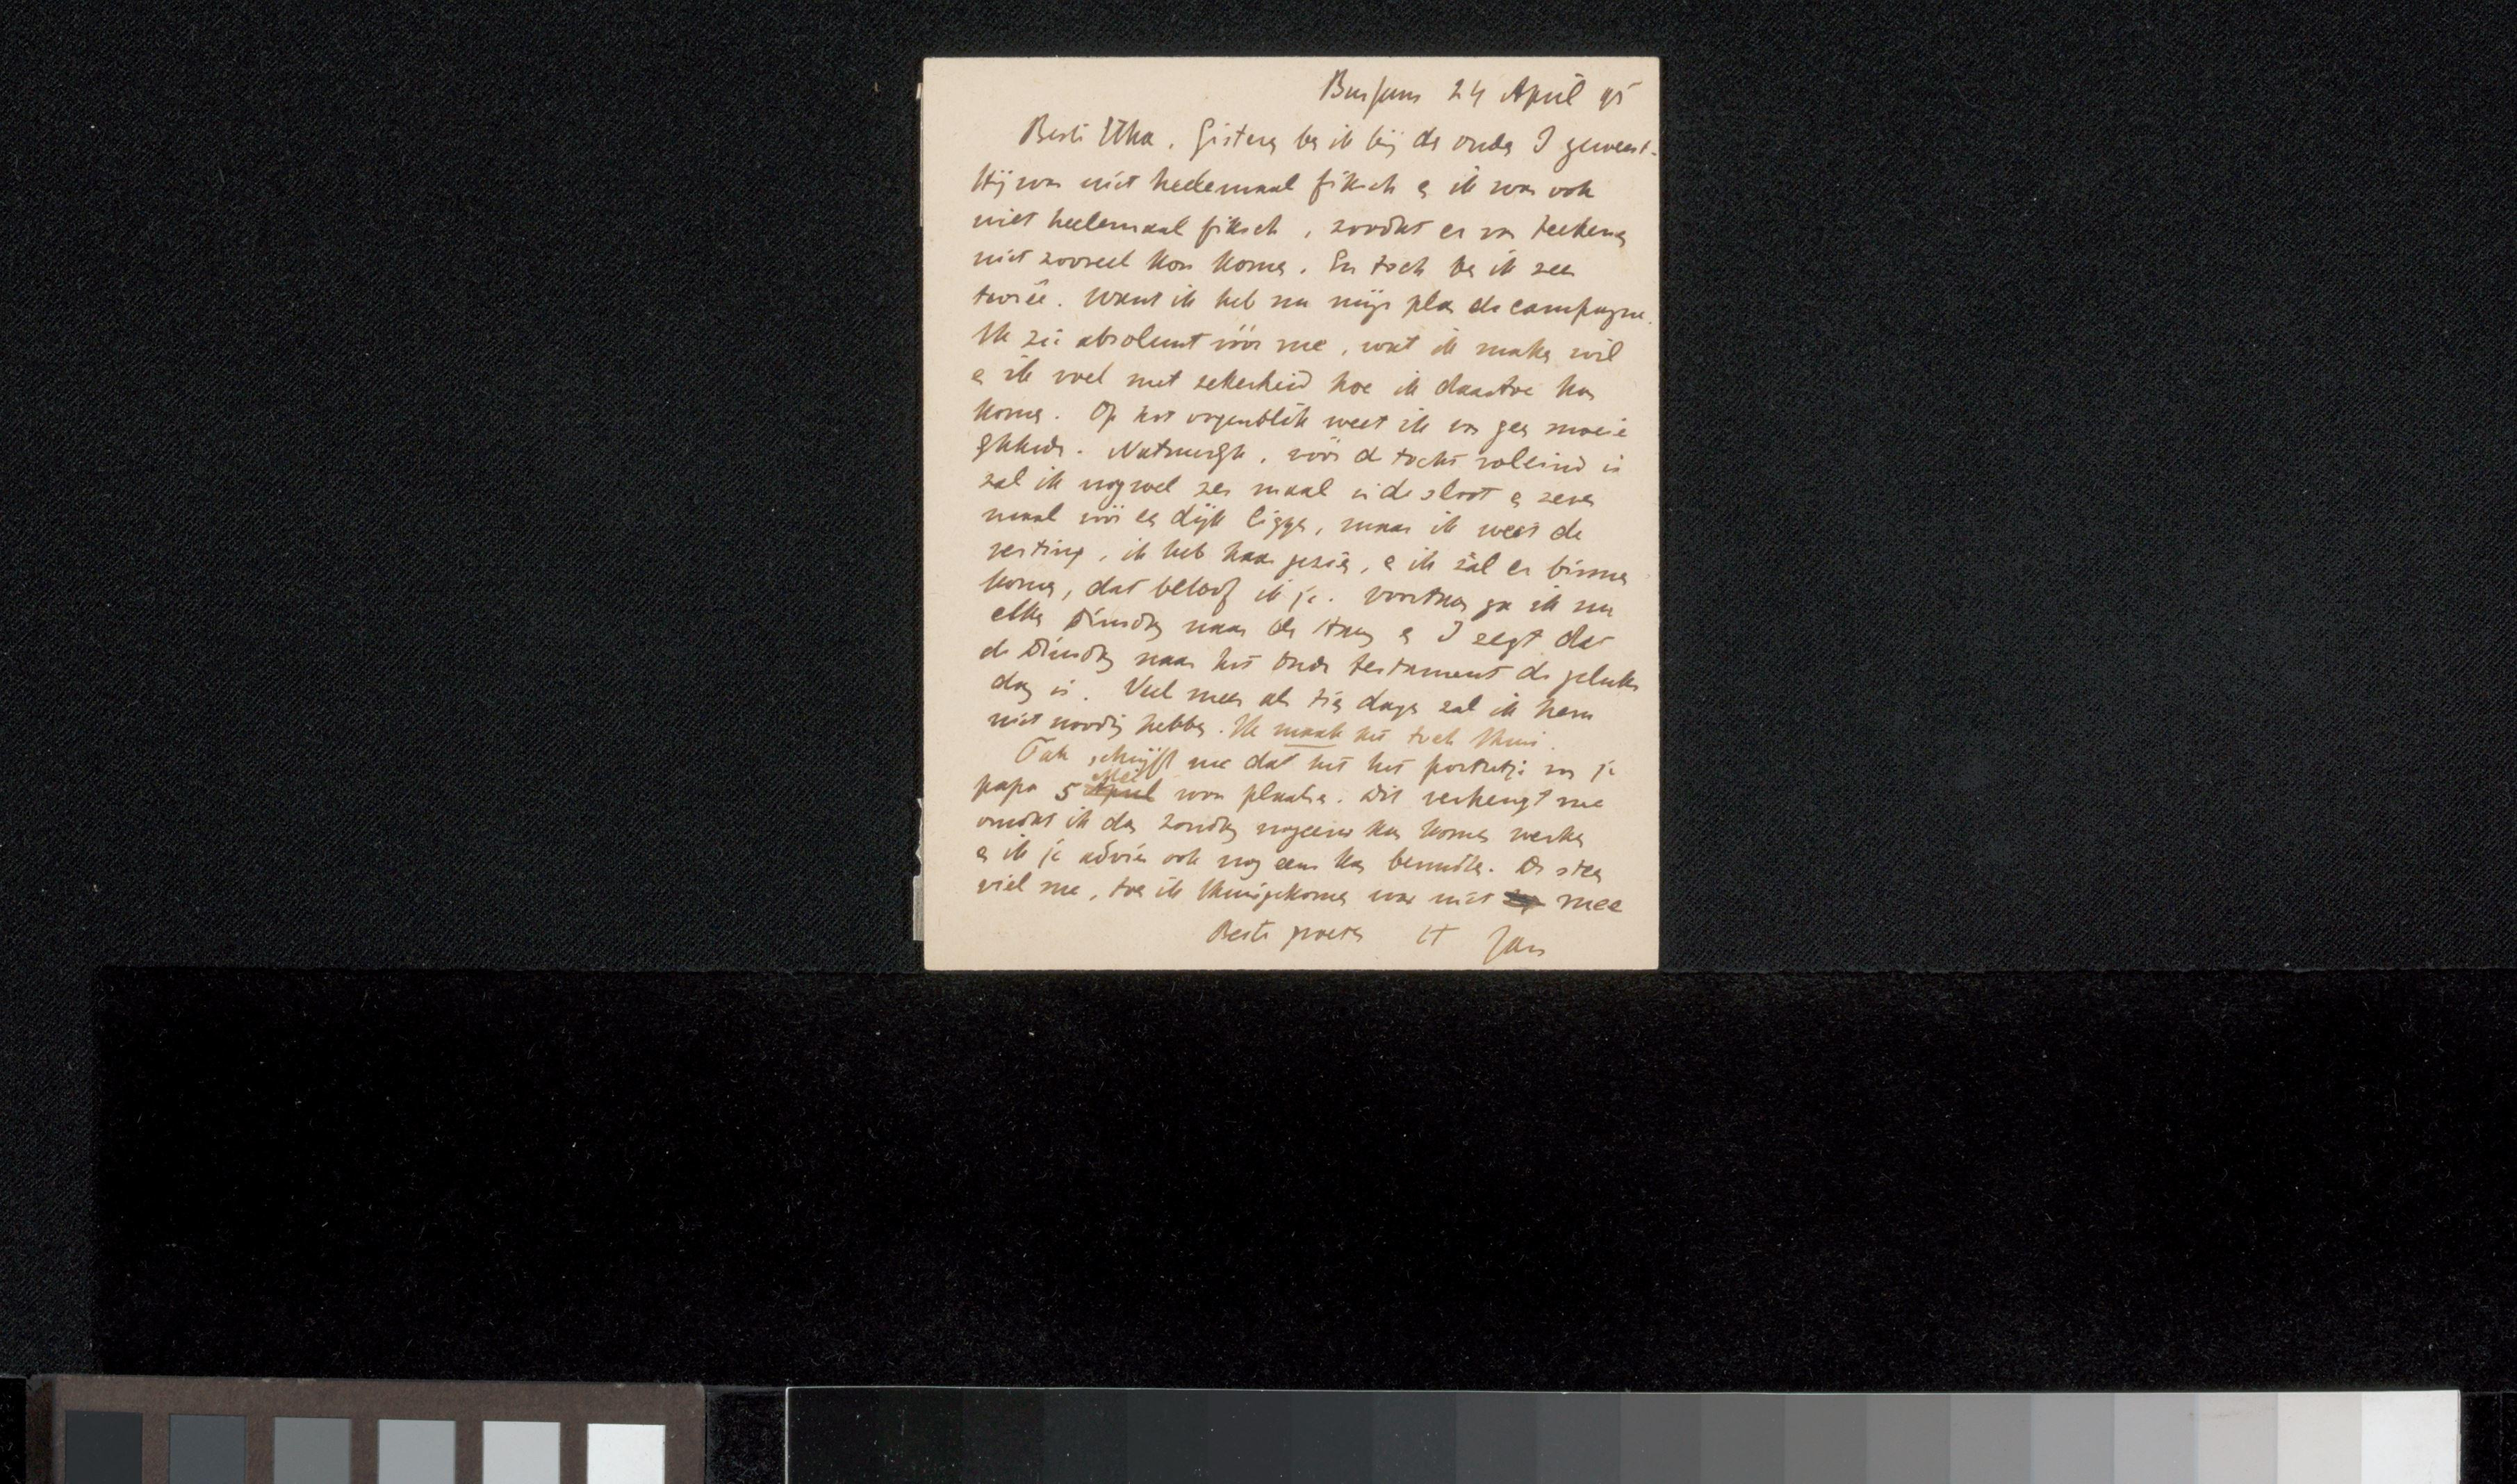 Bussum 24 April 95
Beste Uha. Gisteren ben ik bij den ouden I geweest.
Hij was niet heelemaal fiksch en ik was ook
niet heelemaal fiksch, zoodat er van teekenen
niet zooveel kon komen. En toch ben ik zeer
tevrêe. Want ik heb nu mijn plan de campagne.
Ik zie absoluut vóór me, wat ik maken wil
en ik voel met zekerheid hoe ik daartoe kan
komen. Op het oogenblik weet ik van geen moeie
lijkheden. Natuurlijk, vóór de tocht voleind is
zal ik nog wel zes maal in de sloot en zeven
maal vóór een dijk liggen, maar ik weet de
vesting, ik heb haar gezien, en ik zàl er binnen
komen, dat beloof ik je. Voortaan ga ik nu
elken Dinsdag naar den Haag en I zegt dat
de Dinsdag naar het oude testament de geluks
dag is. Veel meer als tien dagen zal ik hem
niet noodig hebben. Ik maak het toch thuis.
Tak schrijft me dat hij het portretje van je
papa 5 April Mei wou plaatsen. Dit verheugt me
omdat ik dan Zondag nog eens kan komen werken
en ik je advies ook nog eens kan benutten. De steen
viel me, toen ik thuisgekomen was niet mee
Beste groeten tt Jan